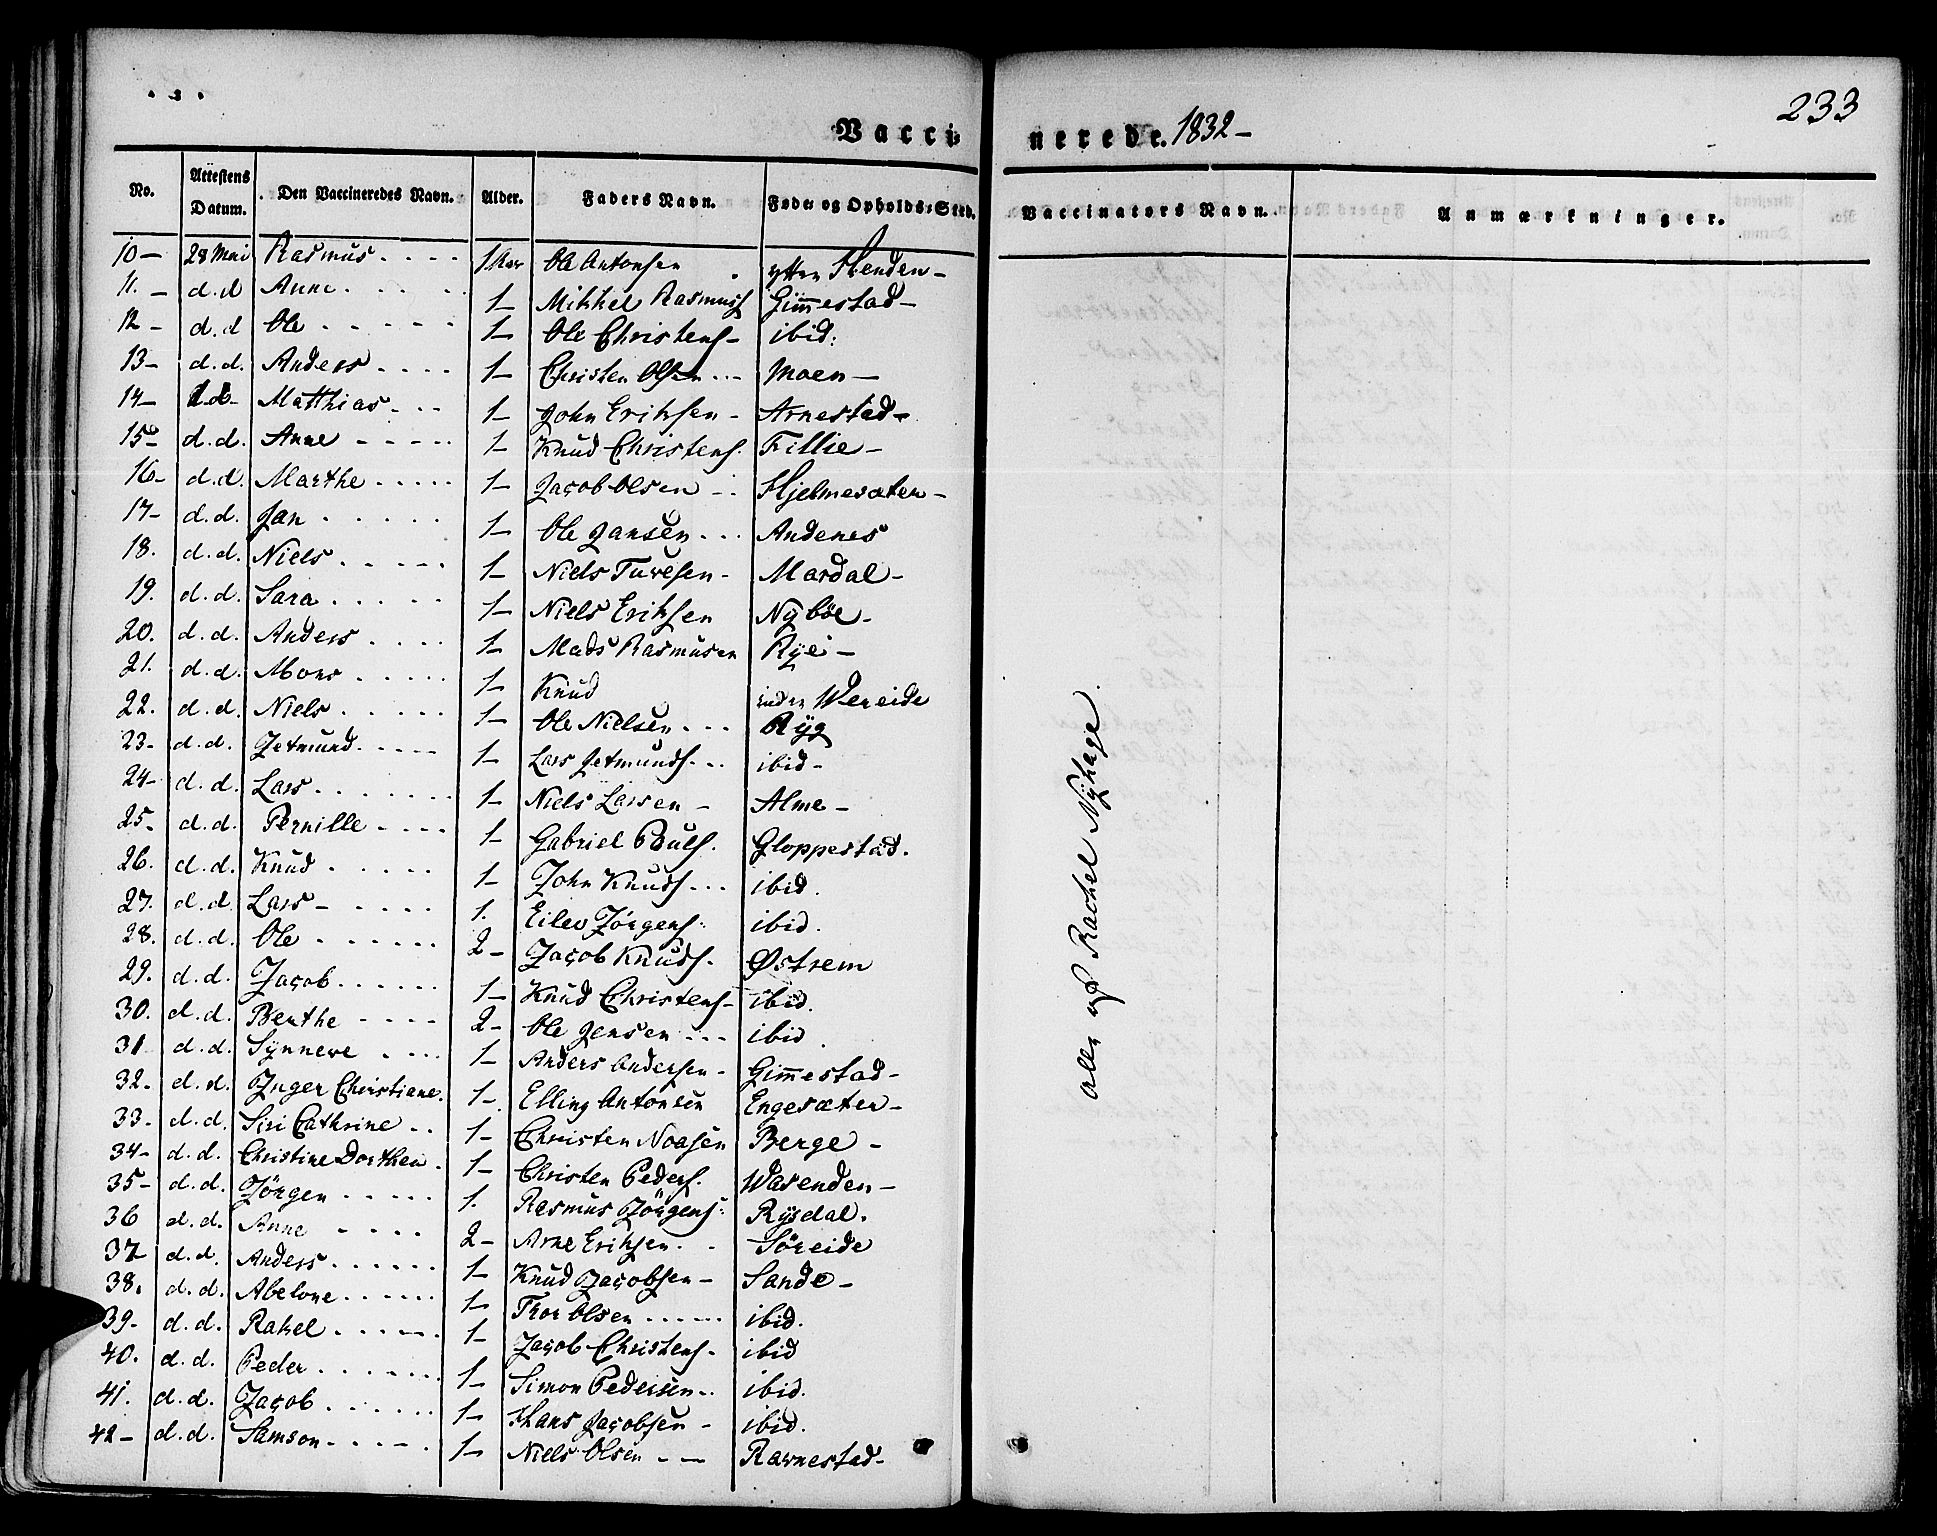 233
Vaccinerede. 1832 –
No. | Attestens Datum. | Den Vaccineredes Navn. | Alder. | Faders Navn. | Føde- og Opholds-Sted. | Vaccinators Navn. | Anmærkninger.
10 – 28 Mai Rasmus . . . . 1 Aar Ole Antonsen . ytter Henden –
11. – d. d Anne . . . . 1 – Mikkel Rasmuss Gim̅estad –
12 – d. d Ole . . . . . 1 – Ole Christens – ibid.
13 – d. d. Anders . . . . 1 – Christen Olsen . . . Moen –
14 – d. d – Matthias . . . 1 – John Eriksen – Arnestad –
15 – d. d. Anne . . . . . 1 – Knud Christens. Fillie –
16 – d. d. Marthe . . . . . 1 – Jacob Olsen – . . Hjelmesæter –
17 – d. d. Jan . . . . . 1 – Ole Jansen . . . Andenes
18. d. d. Niels . . . . . 1 – Niels Turesen – Mardal –
19. d. d. Sara . . . . . 1 – Niels Eriksen Nybøe –
20. d. d. Anders . . . . 1 – Mads Rasmusen Rye –
21. d. d. Mons . . . . . 1 – Knud inder Wereide
22. d. d. Niels . . . . . 1 – Ole Nielsen . . . Ryg
23 – d. d. Jetmund . . . . . 1 – Lars Jetmunds . . . ibid –
24 – d. d. Lars . . . . . . 1 – Niels Larsen – Alme –
25 – d. d. Pernille . . . . 1 – Gabriel Pouls. Gloppestad.
26. d. d. Knud . . . . . 1 – John Knuds . . . ibid.
27. d. d. Lars – . . . . 1. Eilev Jörgens. ibid.
28. d. d. Ole . . . . . . 2 – Jacob Knuds. Østrem
29. d. d. Jacob . . . . . . 1 – Knud Christens – ibid.
30. d. d. Berthe . . . . 2 – Ole Jensen . . . ibid.
31 d. d. Synneve . . . . 1 – Anders Andersen – Gim̅estad –
32. d. d. Inger Christiane. 1 – Elling Antonsen Engesæter –
33. d. d. Siri Cathrine . . 1 – Christen Noasen Berge –
34 – d. d. Christine Dorthea . 1 – Christen Peders. Wasenden –
35 – d. d. Jörgen . . . . . 1. Rasmus Jörgens. Rysdal.
36 d. d. Anne . . . . 2 – Arne Eriksen . . Söreide
37 d. d. Anders . . . . . . 1 – Knud Jacobsen – Sande –
38. d. d. Abelone . . . . . . 1 – Thor Olsen . . . . . . ibid.
39. d. d. Rakel . . . . . . 1 – Jacob Christens – ibid
40. d. d. Peder . . . . . . 1 – Simon Pedersen . . ibid.
41. d. d. Jacob . . . . . . 1 – Hans Jacobsen – ibid.
42 – d. d. Samson . . . . . 1 – Niels Olsen – – Ravnestad –
alle af Rachel Nyhage.